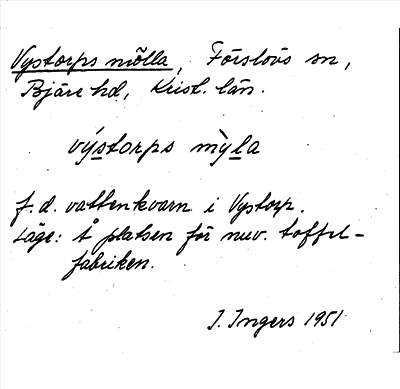 Vystorps mölla, Förslövs sn,
Bjäre hd, Krist. län.
výstorps mỳla
f.d. vattenkvarn i Vystorp.
Läge: å platsen för nuv. toffel-
fabriken.
I. Ingers 1951